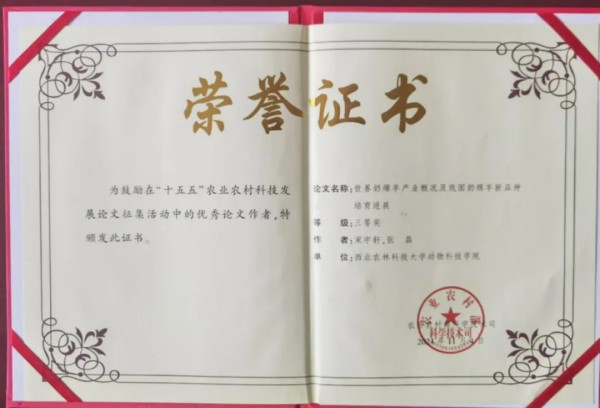 荣誉证书
为鼓励在“十五五”农业农村科技发
展论文征集活动中的优秀论文作者,特
颁发此证书。
论文名称:世界奶绵羊产业概况及我国奶绵羊新品种
培育进展
等 级:三等奖
作 者:宋宇轩,张磊
单 位:西北农林科技大学动物科技学院
农业农村部科学技术司
科学技术司